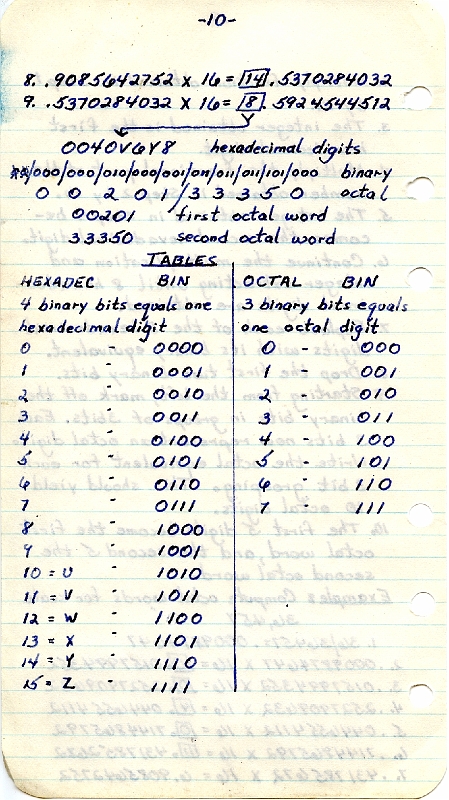 -10-
8. .9085642752 X 16 = 14 .5370284032
9. .5370284032 X 16 = 8 .5924544512
0040V6Y8 hexadecimal digits
/000/000/010/000/001/011/011/011/101/000 binary
0 0 2 0 1 / 3 3 3 5 0 octal
00201 first octal word
33350 second octal word
TABLES
HEXADEC BIN
4 binary bits equals one
hexadecimal digit
0 - 0000
1 - 0001
2 - 0010
3 - 0011
4 - 0100
5 - 0101
6 - 0110
7 - 0111
8 - 1000
9 - 1001
10 = U - 1010
11 = V - 1011
12 = W - 1100
13 = X - 1101
14 = Y - 1110
15 = Z - 1111
OCTAL BIN
3 binary bits equals
one octal digit
0 - 000
1 - 001
2 - 010
3 - 011
4 - 100
5 - 101
6 - 110
7 - 111